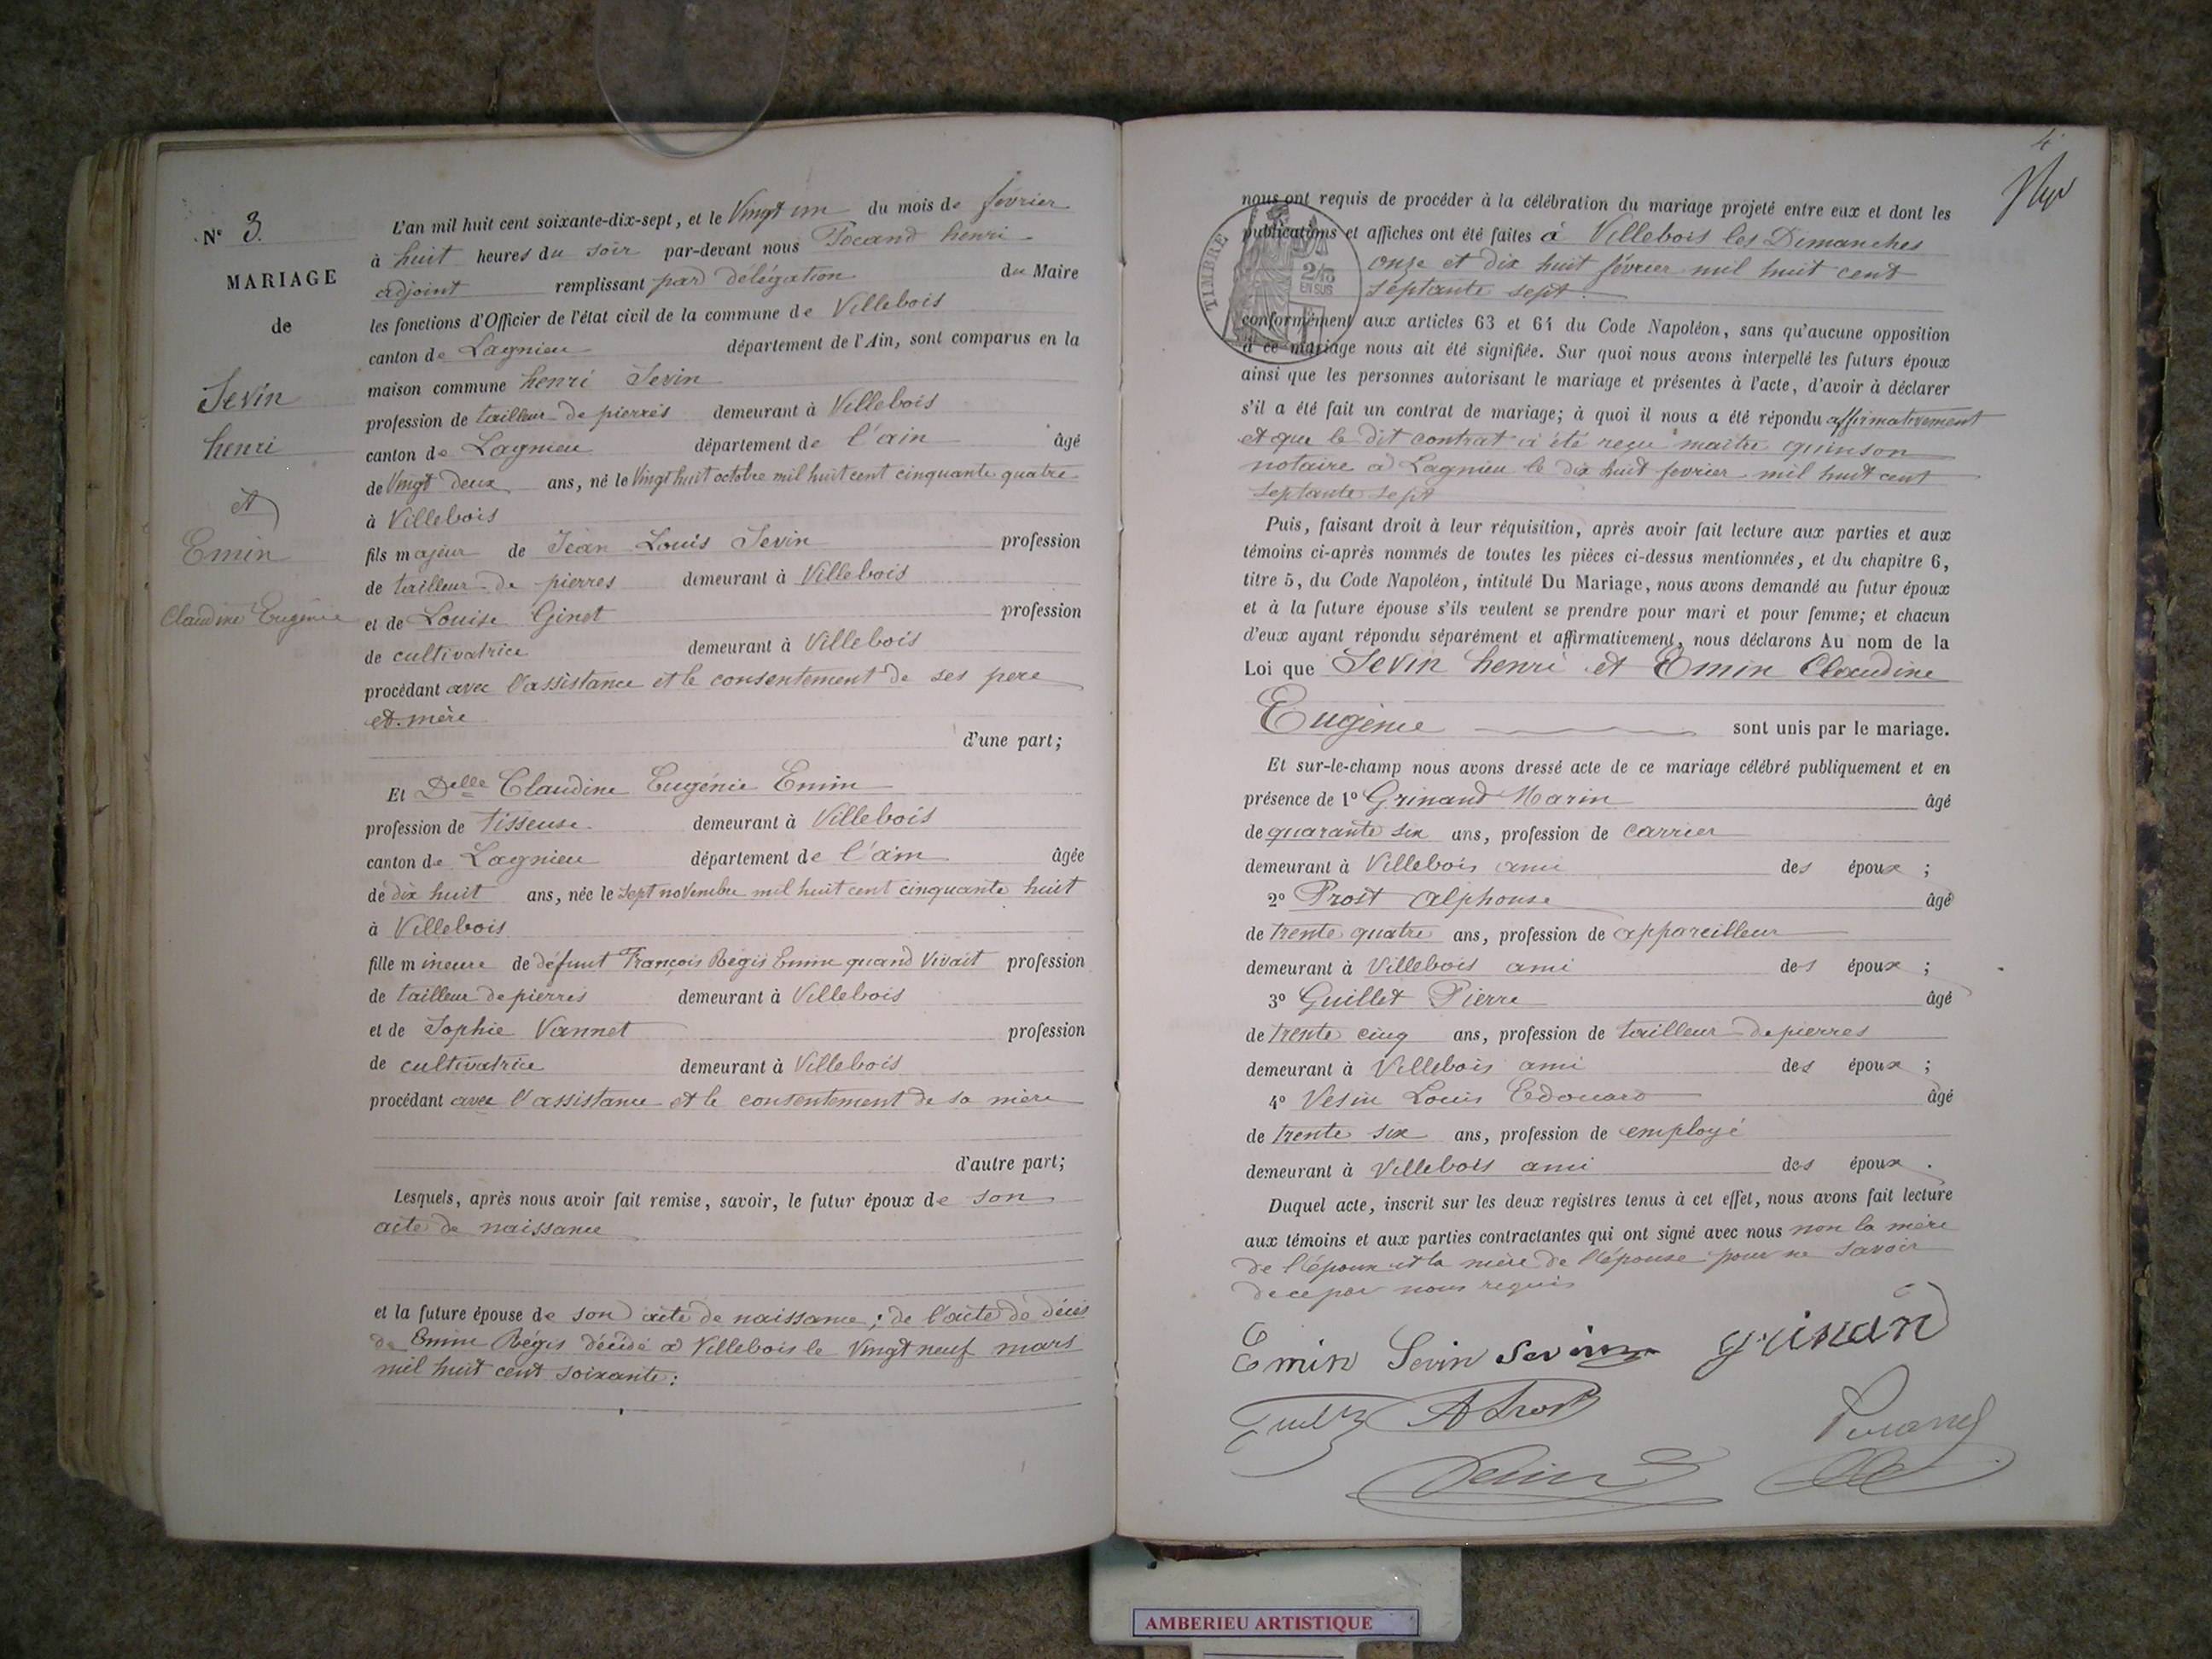 N° 3.
MARIAGE
de
Sevin
henri
et
Emin
Claudine Eugénie
L'an mil huit cent soixante-dix-sept, et le Vingt un du mois de février
à huit heures du soir par-devant nous Pocand henri
adjoint remplissant par délégation du Maire
les fonctions d'Officier de l'état civil de la commune de Villebois
canton de Lagnieu département de l'Ain, sont comparus en la
maison commune henri Sevin
profession de tailleur de pierres demeurant à Villebois
canton de Lagnieu département de l'ain âgé
de Vingt deux ans, né le Vingt huit octobre mil huit cent cinquante quatre
à Villebois
fils majeur de Jean Louis Sevin profession
de tailleur de pierres demeurant à Villebois
et de Louise Ginet profession
de cultivatrice demeurant à Villebois
procédant avec l'assistance et le consentement de ses pere
et mère
d'une part;
Et Delle Claudine Eugénie Emin
profession de Tisseuse demeurant à Villebois
canton de Lagnieu département de l'ain âgée
de dix huit ans, née le sept novembre mil huit cent cinquante huit
à Villebois
fille mineure de défunt François Régis Emin quand Vivait profession
de tailleur de pierres demeurant à Villebois
et de Sophie Vannet profession
de cultivatrice demeurant à Villebois
procédant avec l'assistance et le consentement de sa mère
d'autre part;
Lesquels, après nous avoir fait remise, savoir, le futur époux de son
acte de naissance
et la future épouse de son acte de naissance; de l'acte de décès
de Emin Régis décédé à Villebois le Vingt neuf mars
mil huit cent soixante:
4
nous ont requis de procéder à la célébration du mariage projeté entre eux et dont les
publications et affiches ont été faites à Villebois les Dimanches
onze et dix huit février mil huit cent
septante sept.
TIMBRE
2/10
EN SUS
conformément aux articles 63 et 64 du Code Napoléon, sans qu'aucune opposition
à ce mariage nous ait été signifiée. Sur quoi nous avons interpellé les futurs époux
ainsi que les personnes autorisant le mariage et présentes à l'acte, d'avoir à déclarer
s'il a été fait un contrat de mariage; à quoi il nous a été répondu affirmativement
et que le dit contrat a été reçu maitre quinson
notaire à Lagnieu le dix huit fevrier mil huit cent
septante sept
Puis, faisant droit à leur réquisition, après avoir fait lecture aux parties et aux
témoins ci-après nommés de toutes les pièces ci-dessus mentionnées, et du chapitre 6,
titre 5, du Code Napoléon, intitulé Du Mariage, nous avons demandé au futur époux
et à la future épouse s'ils veulent se prendre pour mari et pour femme; et chacun
d'eux ayant répondu séparément et affirmativement, nous déclarons Au nom de la
Loi que Sevin henri et Emin Claudine
Eugénie sont unis par le mariage.
Et sur-le-champ nous avons dressé acte de ce mariage célébré publiquement et en
présence de 1° Grinand Marin âgé
de quarante six ans, profession de carrier
demeurant à Villebois ami des époux ;
2° Prost Alphonse âgé
de trente quatre ans, profession de appareilleur
demeurant à Villebois ami des époux ;
3° Guillet Pierre âgé
de trente cinq ans, profession de tailleur de pierres
demeurant à Villebois ami des époux ;
4° Vesin Louis Edouard âgé
de trente six ans, profession de employé
demeurant à Villebois ami des époux.
Duquel acte, inscrit sur les deux registres tenus à cet effet, nous avons fait lecture
aux témoins et aux parties contractantes qui ont signé avec nous non la mère
de l'époux et la mère de l'épouse pour ne savoir
de ce par nous requis
Emin Sevin Sevin grinand
A Prost
AMBERIEU ARTISTIQUE